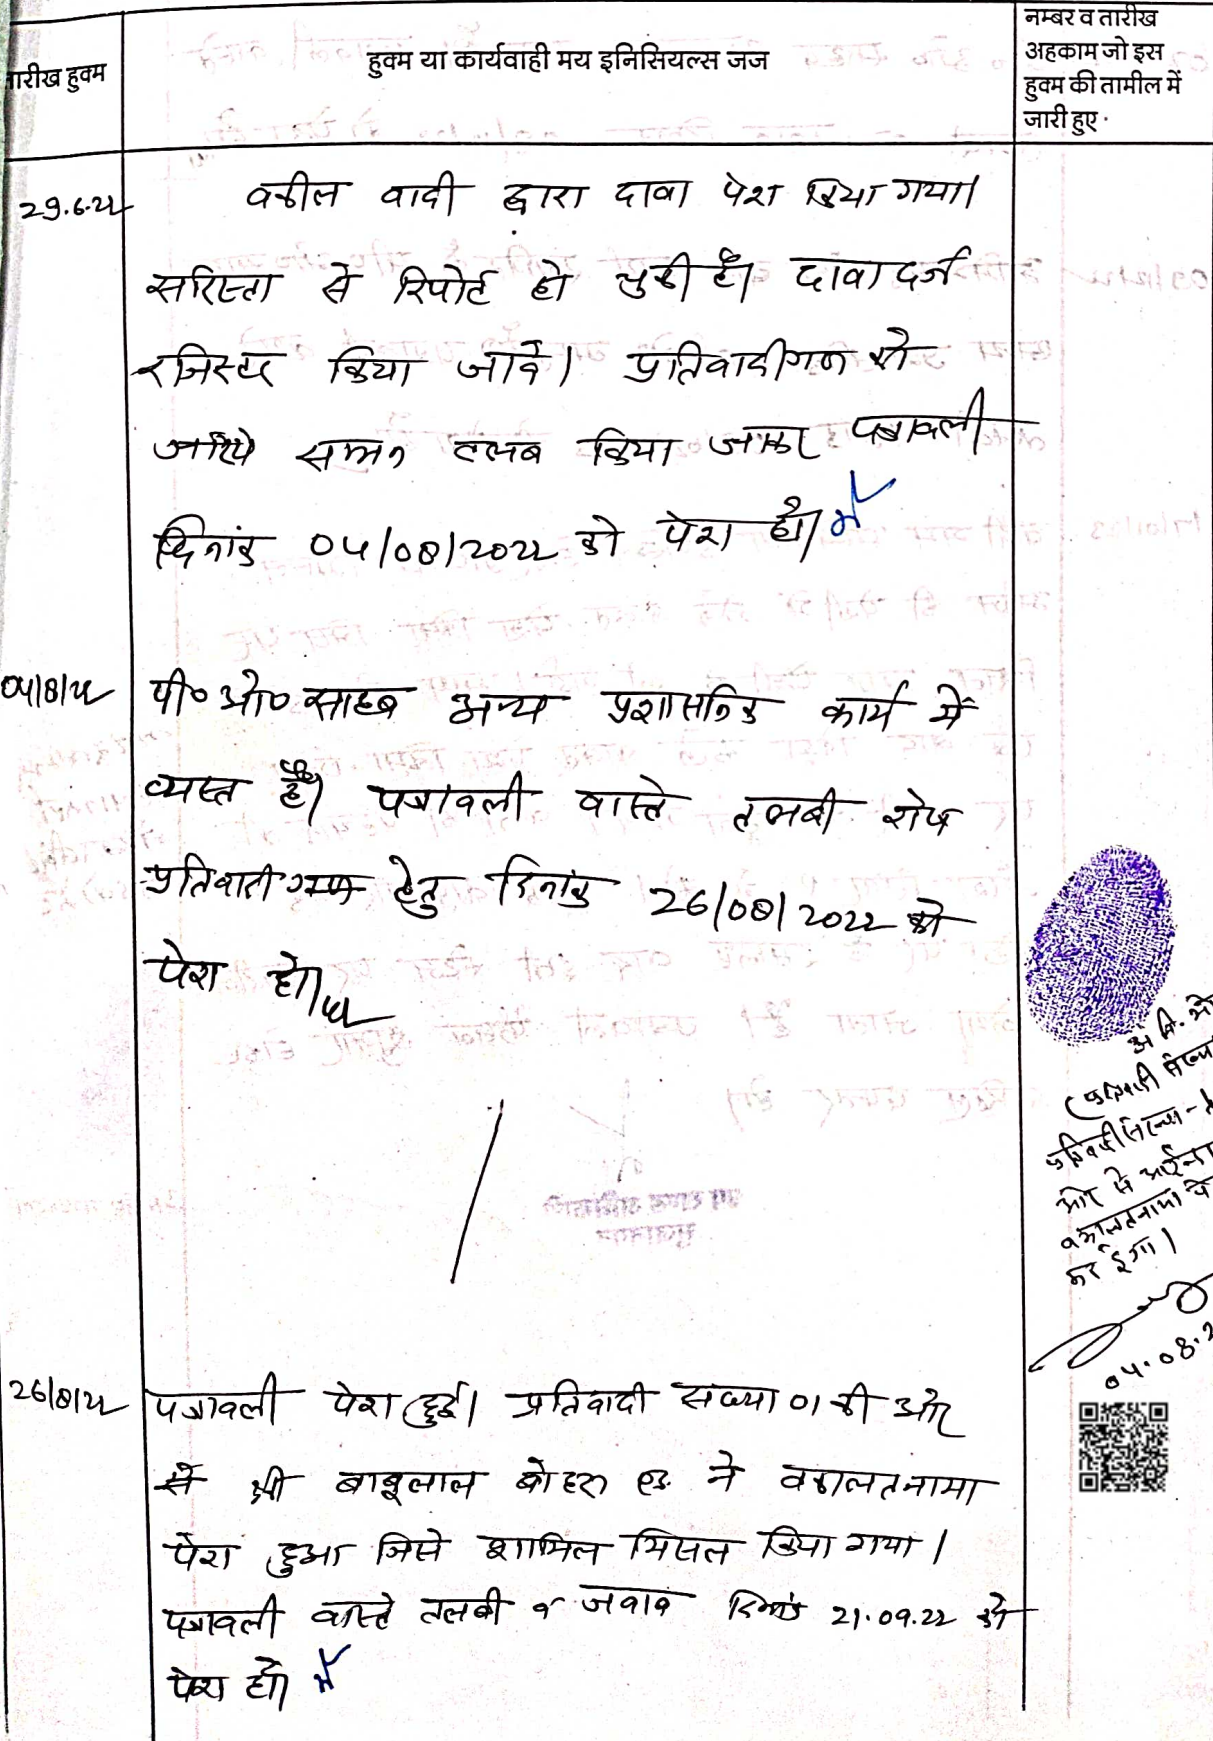 तारीख हुक्म
हुक्म या कार्यवाही मय इनिसियल्स जज
नम्बर व तारीख
अहकाम जो इस
हुक्म की तामील में
जारी हुए
29.6.22
वकील वादी द्वारा दावा पेश किया गया।
सरिस्ता से रिपोर्ट हो चुकी है। दावा दर्ज
रजिस्टर किया जावे। प्रतिवादीगण को
जरिये सम्मन तलब किया जाकर पत्रावली
दिनांक 04/08/2022 को पेश हो।
04/8/22
पी० ओ० साहब अन्य प्रशासनिक कार्य में
व्यस्त है। पत्रावली वास्ते तलबी शेष
प्रतिवादीगण हेतु दिनांक 26/08/2022 को
पेश हो।
प्रतिवादी संख्या
ओर से
वकालतनामा पे
कर दूंगा।
04.08.2
26/8/22
पत्रावली पेश हुई। प्रतिवादी संख्या 01 की ओर
से श्री बाबूलाल बोहरा एड. ने वकालतनामा
पेश हुआ जिसे शामिल मिसल किया गया।
पत्रावली वास्ते तलबी व जवाब दिनांक 21.09.22 को
पेश हो।